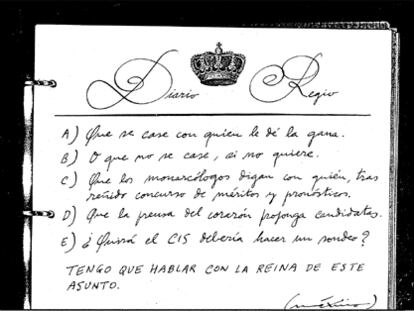 Diario Regio
A) Que se case con quien le dé la gana.
B) O que no se case, si no quiere.
C) Que los monarcólogos digan con quién, tras
reñido concurso de méritos y pronósticos.
D) Que la prensa del corazón proponga candidatas.
E) ¿Quizá el CIS debería hacer un sondeo?
TENGO QUE HABLAR CON LA REINA DE ESTE
ASUNTO.
(máximo)